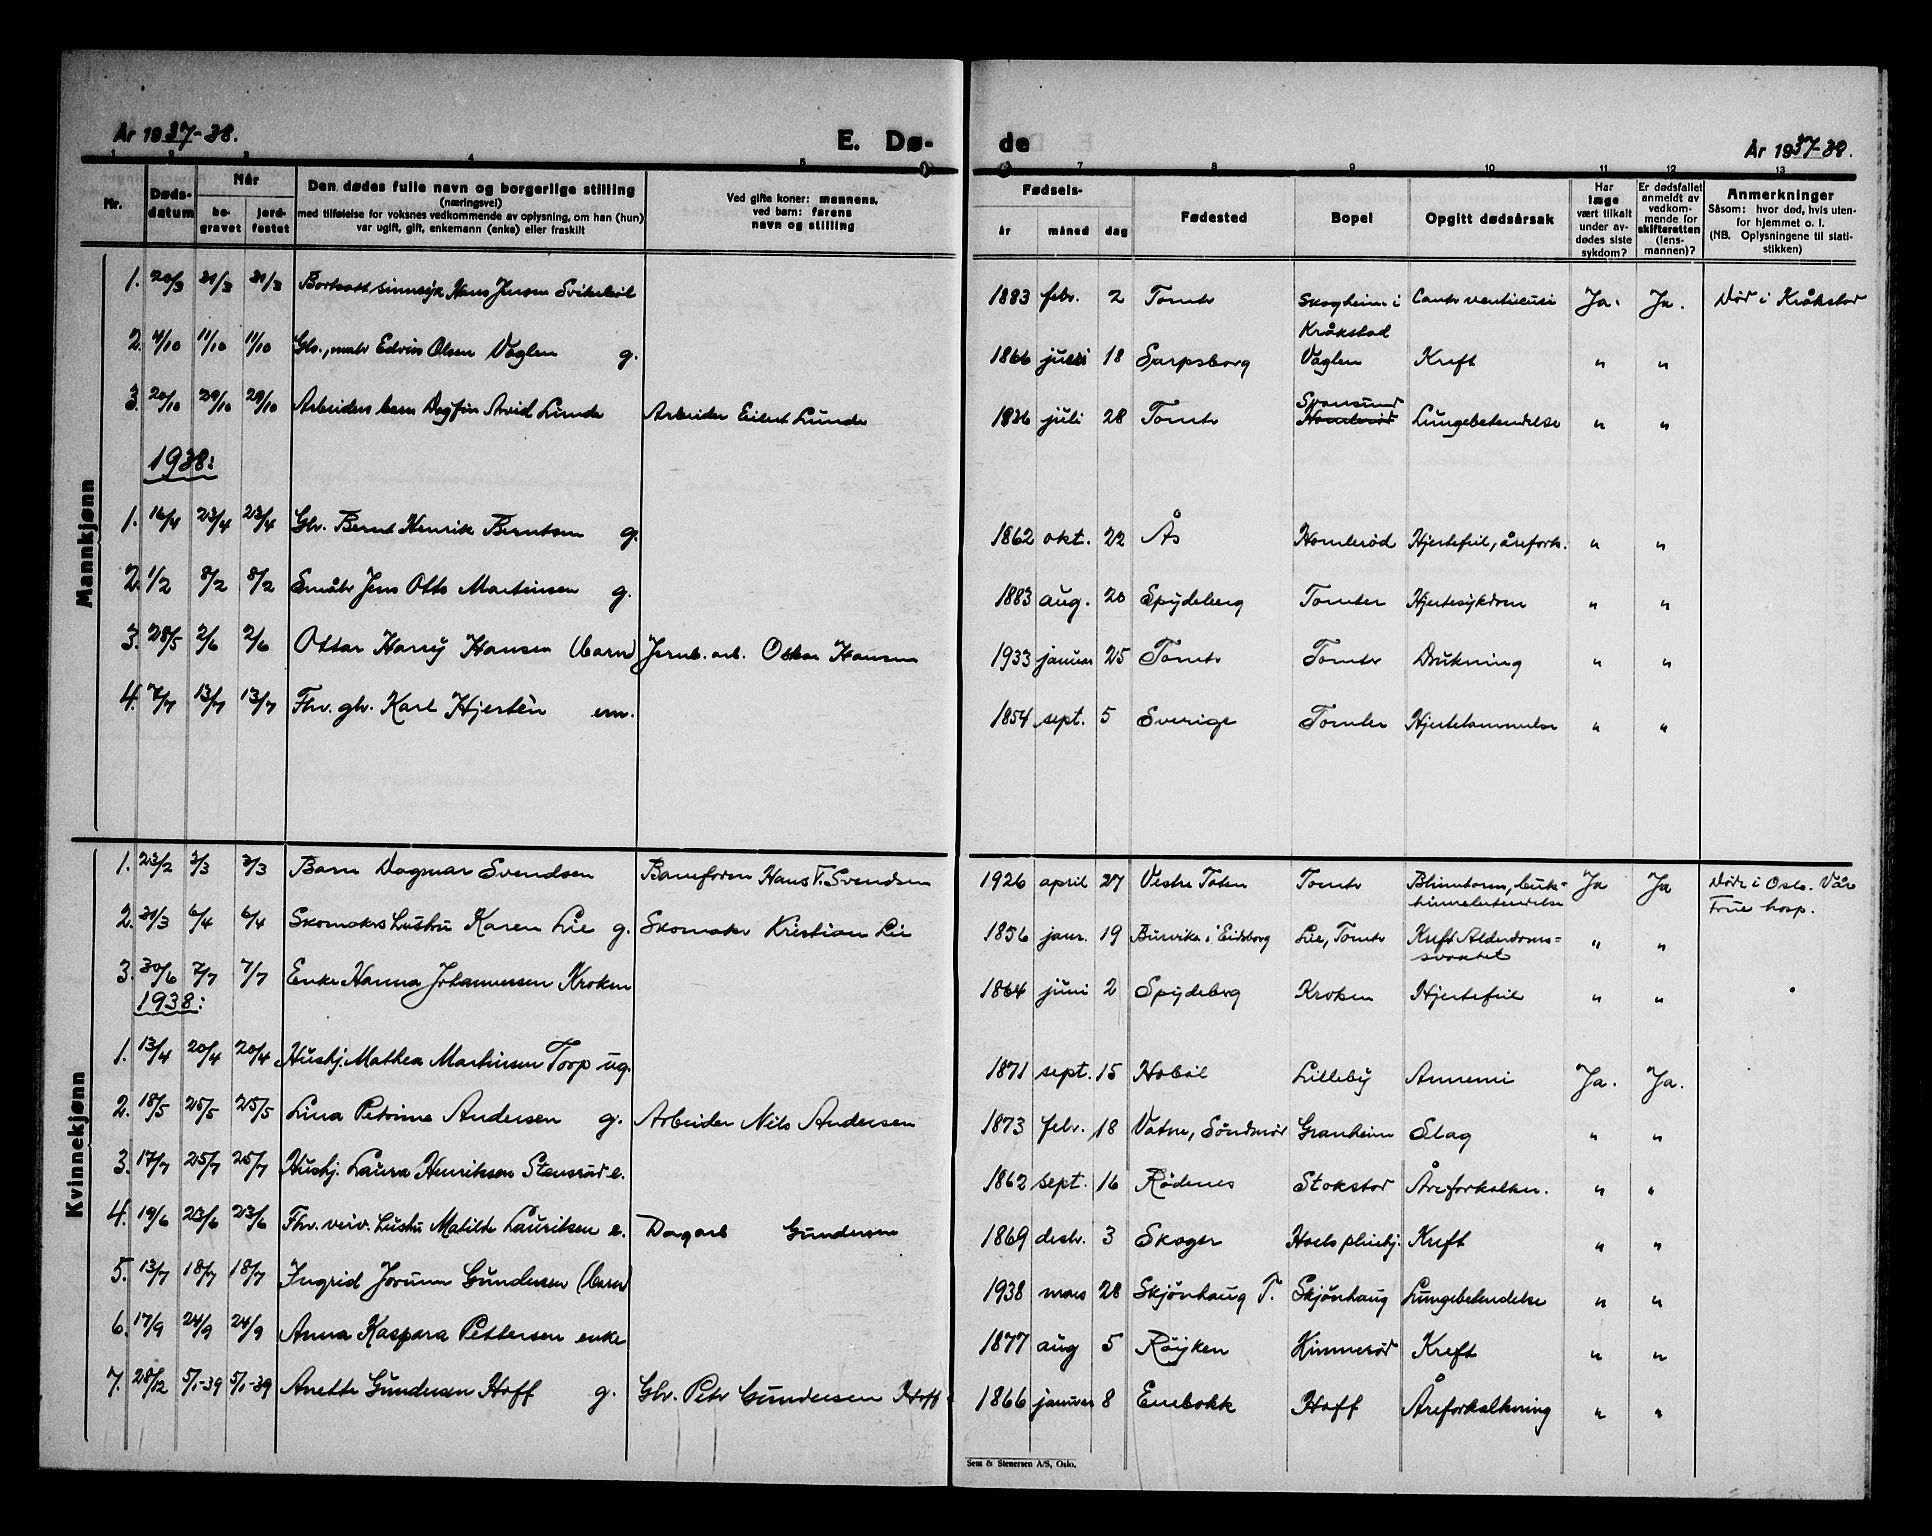 År 1937-38.
E. Dø-
de
År 1937-38.
1 2 3 4 5 7 8 9 10 11 12 13
Nr.
Døds-
datum
Når
be-
gravet
jord-
festet
Den dødes fulle navn og borgerlige stilling
(næringsvei)
med tilføielse for voksnes vedkommende av oplysning, om han (hun)
var ugift, gift, enkemann (enke) eller fraskilt
Ved gifte koner: mannens,
ved barn: farens
navn og stilling
Fødsels-
år måned dag
Fødested
Bopel
Opgitt dødsårsak
Har
læge
vært tilkalt
under av-
dødes siste
sykdom?
Er dødsfallet
anmeldt av
vedkom-
mende for
skifteretten
(lens-
mannen)?
Anmerkninger
Såsom: hvor død, hvis uten-
for hjemmet o. l.
(NB. Oplysningene til stati-
stikken)
Mannkjønn
1. 20/3 31/3 31/3 Bortsatt sinnssyk Hans Jensen 1883 febr. 2 Tomter Skogheim i Kråkstad Ja. Ja. Død i Kråkstad
2. 4/10 11/10 11/10 Gbr., Edvin Olsen Vaglen g. 1866 18 Sarpsborg Vaglen Kreft " "
3. 20/10 29/10 29/10 Arbeiders barn Dagfin Arvid Lunde Arbeider Eilert Lunde 1936 juli 28 Tomter Sponsund Homlerød Lungebetendelse " "
1938:
1. 16/4 23/4 23/4 Gbr. Bernt Henrik Berntsen g. 1862 okt. 22 Ås Homlerød Hjertefeil, årefork. " "
2. 1/2 8/2 8/2 Småbr Jens Otto Martinsen g. 1883 aug. 20 Spydeberg Tomter Hjertesykdom " "
3. 28/5 2/6 2/6 Ottar Harry Hansen (barn) Jernb. arb. Oskar Hansen 1933 januar 25 Tomter Tomter Drukning " "
4. 7/7 13/7 13/7 Fhv. gbr. Karl Hjertèn em. 1854 sept. 5 Sverige Tomter Hjertelammelse " "
Kvinnekjønn
1. 23/2 3/3 3/3 Barn Dagmar Svendsen Baneform Hans T. Svendsen 1926 april 27 Vestre Toten Tomter Blindtarm, buk-
hinnebetendelse Ja Ja Død i Oslo. Vår
Frue hosp.
2. 31/3 6/4 6/4 Skomakers hustru Karen Lie g. Skomaker Kristian Lie 1856 janr. 19 Burvika i Eidsberg Lie, Tomter Kreft Alderdoms-
svakhet " "
3. 30/6 7/7 7/7 Enke Hanna Johannessen Kroken 1864 juni 2 Spydeberg Kroken Hjertefeil " "
1938:
1. 13/4 20/4 20/4 Hushj. Mathea Martinsen Torp ug. 1871 sept. 15 Hobøl Lilleby Annemi Ja. Ja.
2. 18/5 25/5 25/5 Lina Petrine Andersen g. Arbeider Nils Andersen 1873 febr. 18 Vatne, Søndmør Granheim Slag " "
3. 17/7 25/7 25/7 Hushj. Laura Henriksen Stensrud e. 1862 sept. 16 Rødenes Stokstad Åreforkalkn. " "
4. 19/6 23/6 23/6 Fhv. hustru Matilde Lauritsen e. Dagarb Gundersen 1869 desbr. 3 Skoger Hoels pleiehj. Kreft " "
5. 13/7 18/7 18/7 Ingrid Jorunn Gundersen (barn) 1938 mars 28 Skjønhaug T. Skjønhaug Lungebetendelse " "
6. 17/9 24/9 24/9 Anna Kaspara Pettersen enke 1877 aug 5 Røyken Hinnerød Kreft " "
7. 28/12 5/1-39 5/1-39 Anette Gundersen Hoff g. Gbr. Peter Gundersen Hoff 1866 januar 8 Enebakk Hoff Åreforkalkning " "
Sem & Stenersen A/S, Oslo.